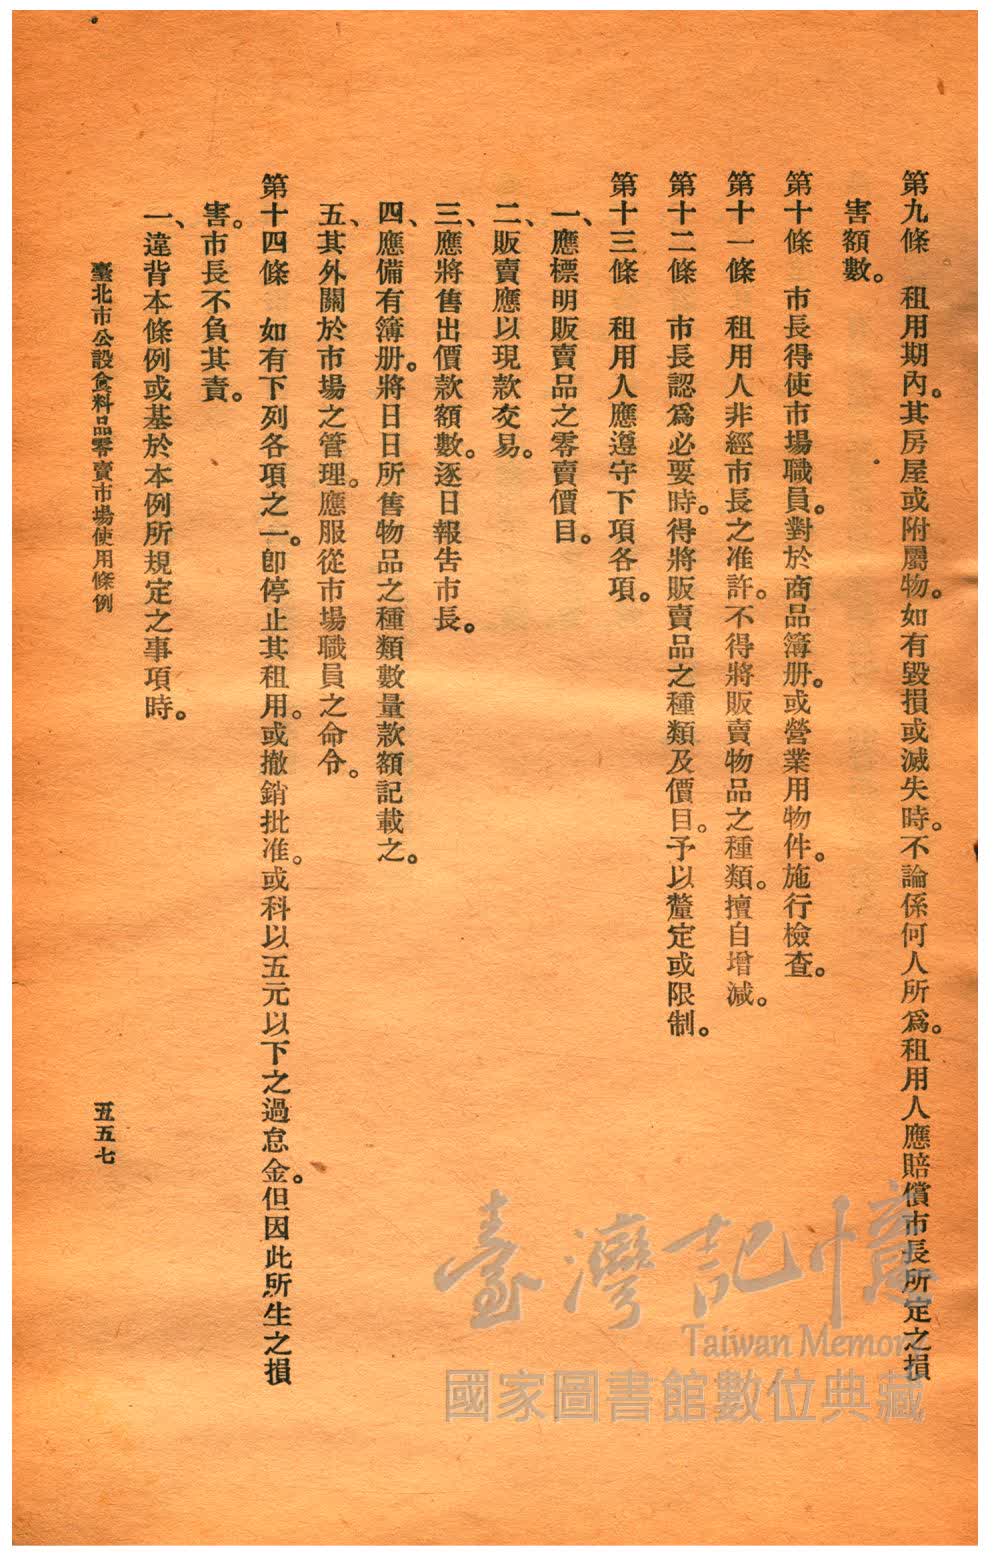 第九條　租用期內。其房屋或附屬物。如有毀損或滅失時。不論係何人所爲。租用人應賠償市長所定之損
害額數。
第十條　市長得使市場職員。對於商品簿册。或營業用物件。施行檢查。
第十一條　租用人非經市長之准許。不得將販賣物品之種類。擅自增減。
第十二條　市長認爲必要時。得將販賣品之種類及價目。予以釐定或限制。
第十三條　租用人應遵守下項各項。
一、應標明販賣品之零賣價目。
二、販賣應以現款交易。
三、應將售出價款額數。逐日報告市長。
四、應備有簿册。將日日所售物品之種類數量款額記載之。
五、其外關於市場之管理。應服從市場職員之命令。
第十四條　如有下列各項之一。卽停止其租用。或撤銷批准。或科以五元以下之過怠金。但因此所生之損
害。市長不負其責。
一、違背本條例或基於本例所規定之事項時。
臺北市公設食料品零賣市場使用條例
五五七
臺灣記憶
Taiwan Memory
國家圖書館數位典藏